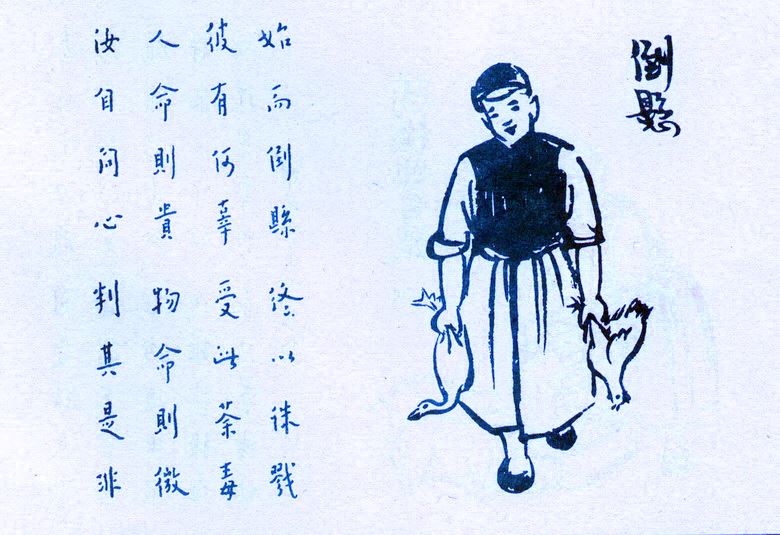 倒懸
始而倒縣 終以誅戮
彼有何辜 受此荼毒
人命則貴 物命則微
汝自問心 判其是非